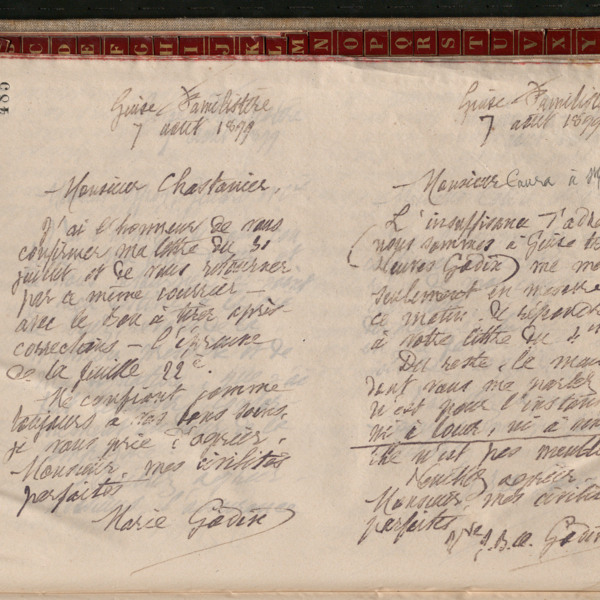 C D E F G H I J K L M N O P Q R S T U V X Y
485
Guise Familistère
7 août 1899
Monsieur Chastanier,
J'ai l'honneur de vous
confirmer ma lettre du 31
juillet et de vous retourner
par ce même courrier –
avec le Bon à tirer après
corrections – l'épreuve
de la feuille 22e.
Me confiant comme
toujours à vos bons soins,
je vous prie d'agréer,
Monsieur, mes civilités
parfaites
Marie Godin
Guise Familistè
7 août 1899
Monsieur Caura à
L'insuffisance d'adre
(nous sommes à Guise
Godin) me
seulement en mesure
ce matin de répondre
à votre lettre du
Du reste, le
dont vous me parlez
n'est pour l'instant
ni à louer, ni à
elle n'est pas meublé
Veuillez agréer,
Monsieur, mes civilité
parfaites
Vve J. B. A. Godin